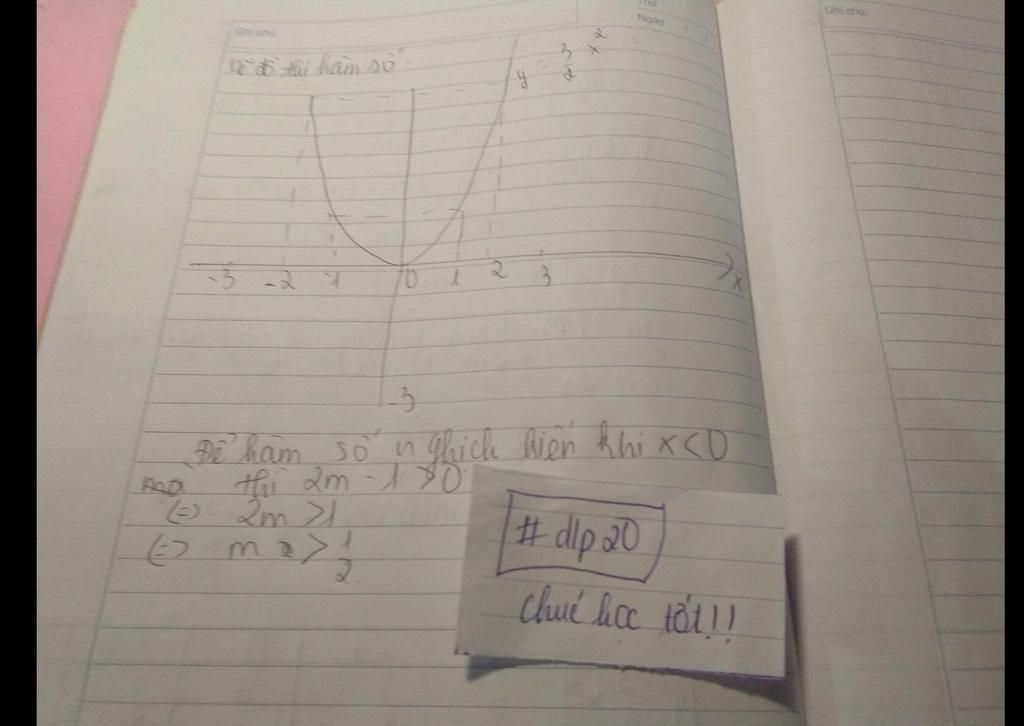 Ghi chú:
Thứ
Ngày
Ghi chú:
Vẽ đồ thị hàm số
y = 3/2 x²
-3 -2 -1 0 1 2 3 x
-3
Để hàm số nghịch biến khi x < 0
thì 2m - 1 > 0
(=) 2m > 1
(=) m > 1/2
# dlp20
Chúc học tốt!!